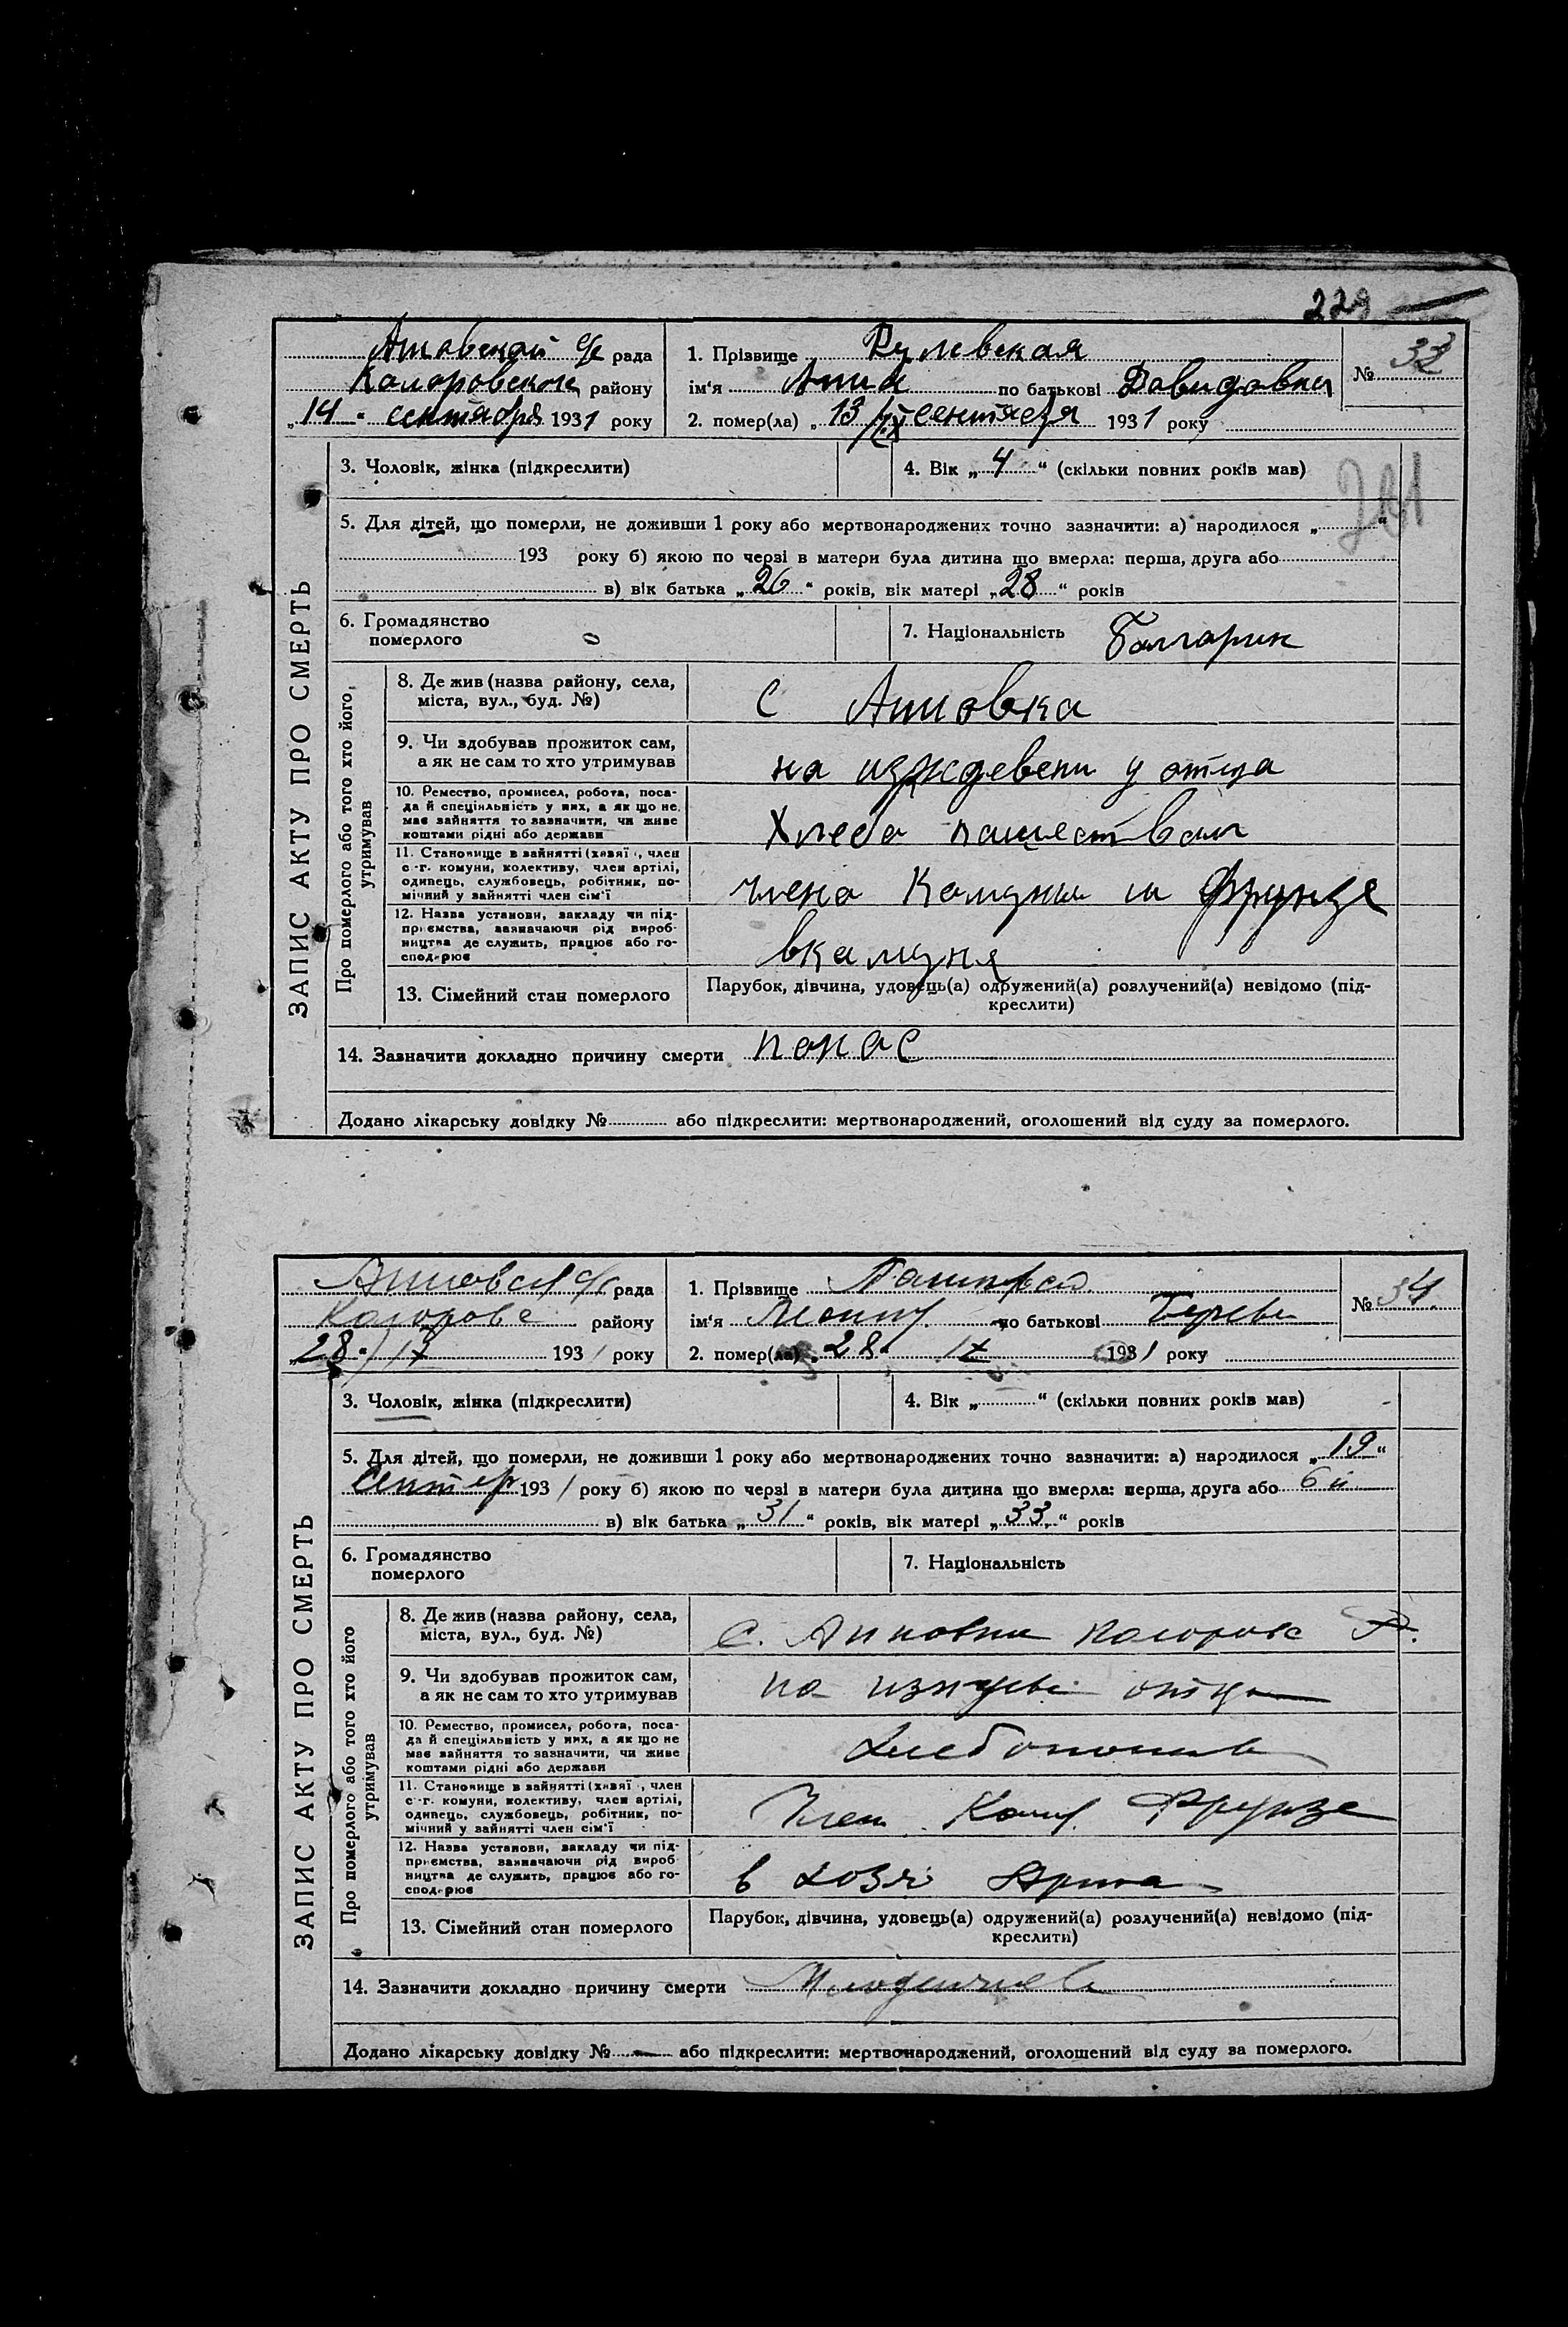 229
ЗАПИС АКТУ ПРО СМЕРТЬ
Анновской с/с рада
Коларовского району
„14“ сентября 1931 року
1. Прізвище Рулевская
ім‘я Анна по батькові Давидовна
2. помер(ла) „13/IX сентября 1931 року
№ 33
3. Чоловік, жінка (підкреслити)
4. Вік „4“ (скільки повних років мав)
201
5. Для дітей, що померли, не доживши 1 року або мертвонароджених точно зазначити: а) народилося „ “
193 року б) якою по черзі в матери була дитина що вмерла: перша, друга або
в) вік батька „26“ років, вік матері „28“ років
6. Громадянство померлого
7. Національність Болгарин
Про померлого або того хто його утримував
8. Де жив (назва району, села, міста, вул., буд. №)
С Анновка
9. Чи здобував прожиток сам, а як не сам то хто утримував
на изждевени у отца
10. Ремество, промисел, робота, посада й спеціяльність у них, а як що не має зайняття то зазначити, чи живе коштами рідні або держави
Хлебо
11. Становище в зайнятті (хазяї, член с.-г. комуни, колективу, член артілі, одинець, службовець, робітник, помічний у зайнятті член сім‘ї
члена Комуны Фрунзе
12. Назва установи, закладу чи підприємства, зазначаючи рід виробництва де служить, працює або господарює
вкамуня
13. Сімейний стан померлого
Парубок, дівчина, удовець(а) одружений(а) розлучений(а) невідомо (підкреслити)
14. Зазначити докладно причину смерти понос
Додано лікарську довідку № або підкреслити: мертвонароджений, оголошений від суду за померлого.
ЗАПИС АКТУ ПРО СМЕРТЬ
Анновск с/с рада
Коларовс району
„28“ IX 1931 року
1. Прізвище
ім‘я по батькові
2. помер(ла) „28“ IX 1931 року
№ 34
3. Чоловік, жінка (підкреслити)
4. Вік „ “ (скільки повних років мав)
5. Для дітей, що померли, не доживши 1 року або мертвонароджених точно зазначити: а) народилося „19“
Сентяр 1931 року б) якою по черзі в матери була дитина що вмерла: перша, друга або 6й
в) вік батька „31“ років, вік матері „33“ років
6. Громадянство померлого
7. Національність
Про померлого або того хто його утримував
8. Де жив (назва району, села, міста, вул., буд. №)
С. Анновка Коларовс Р.
9. Чи здобував прожиток сам, а як не сам то хто утримував
на изждеве отца
10. Ремество, промисел, робота, посада й спеціяльність у них, а як що не має зайняття то зазначити, чи живе коштами рідні або держави
11. Становище в зайнятті (хазяї, член с.-г. комуни, колективу, член артілі, одинець, службовець, робітник, помічний у зайнятті член сім‘ї
Член Комм. Фрунзе
12. Назва установи, закладу чи підприємства, зазначаючи рід виробництва де служить, працює або господарює
в хозя
13. Сімейний стан померлого
Парубок, дівчина, удовець(а) одружений(а) розлучений(а) невідомо (підкреслити)
14. Зазначити докладно причину смерти
Додано лікарську довідку № — або підкреслити: мертвонароджений, оголошений від суду за померлого.